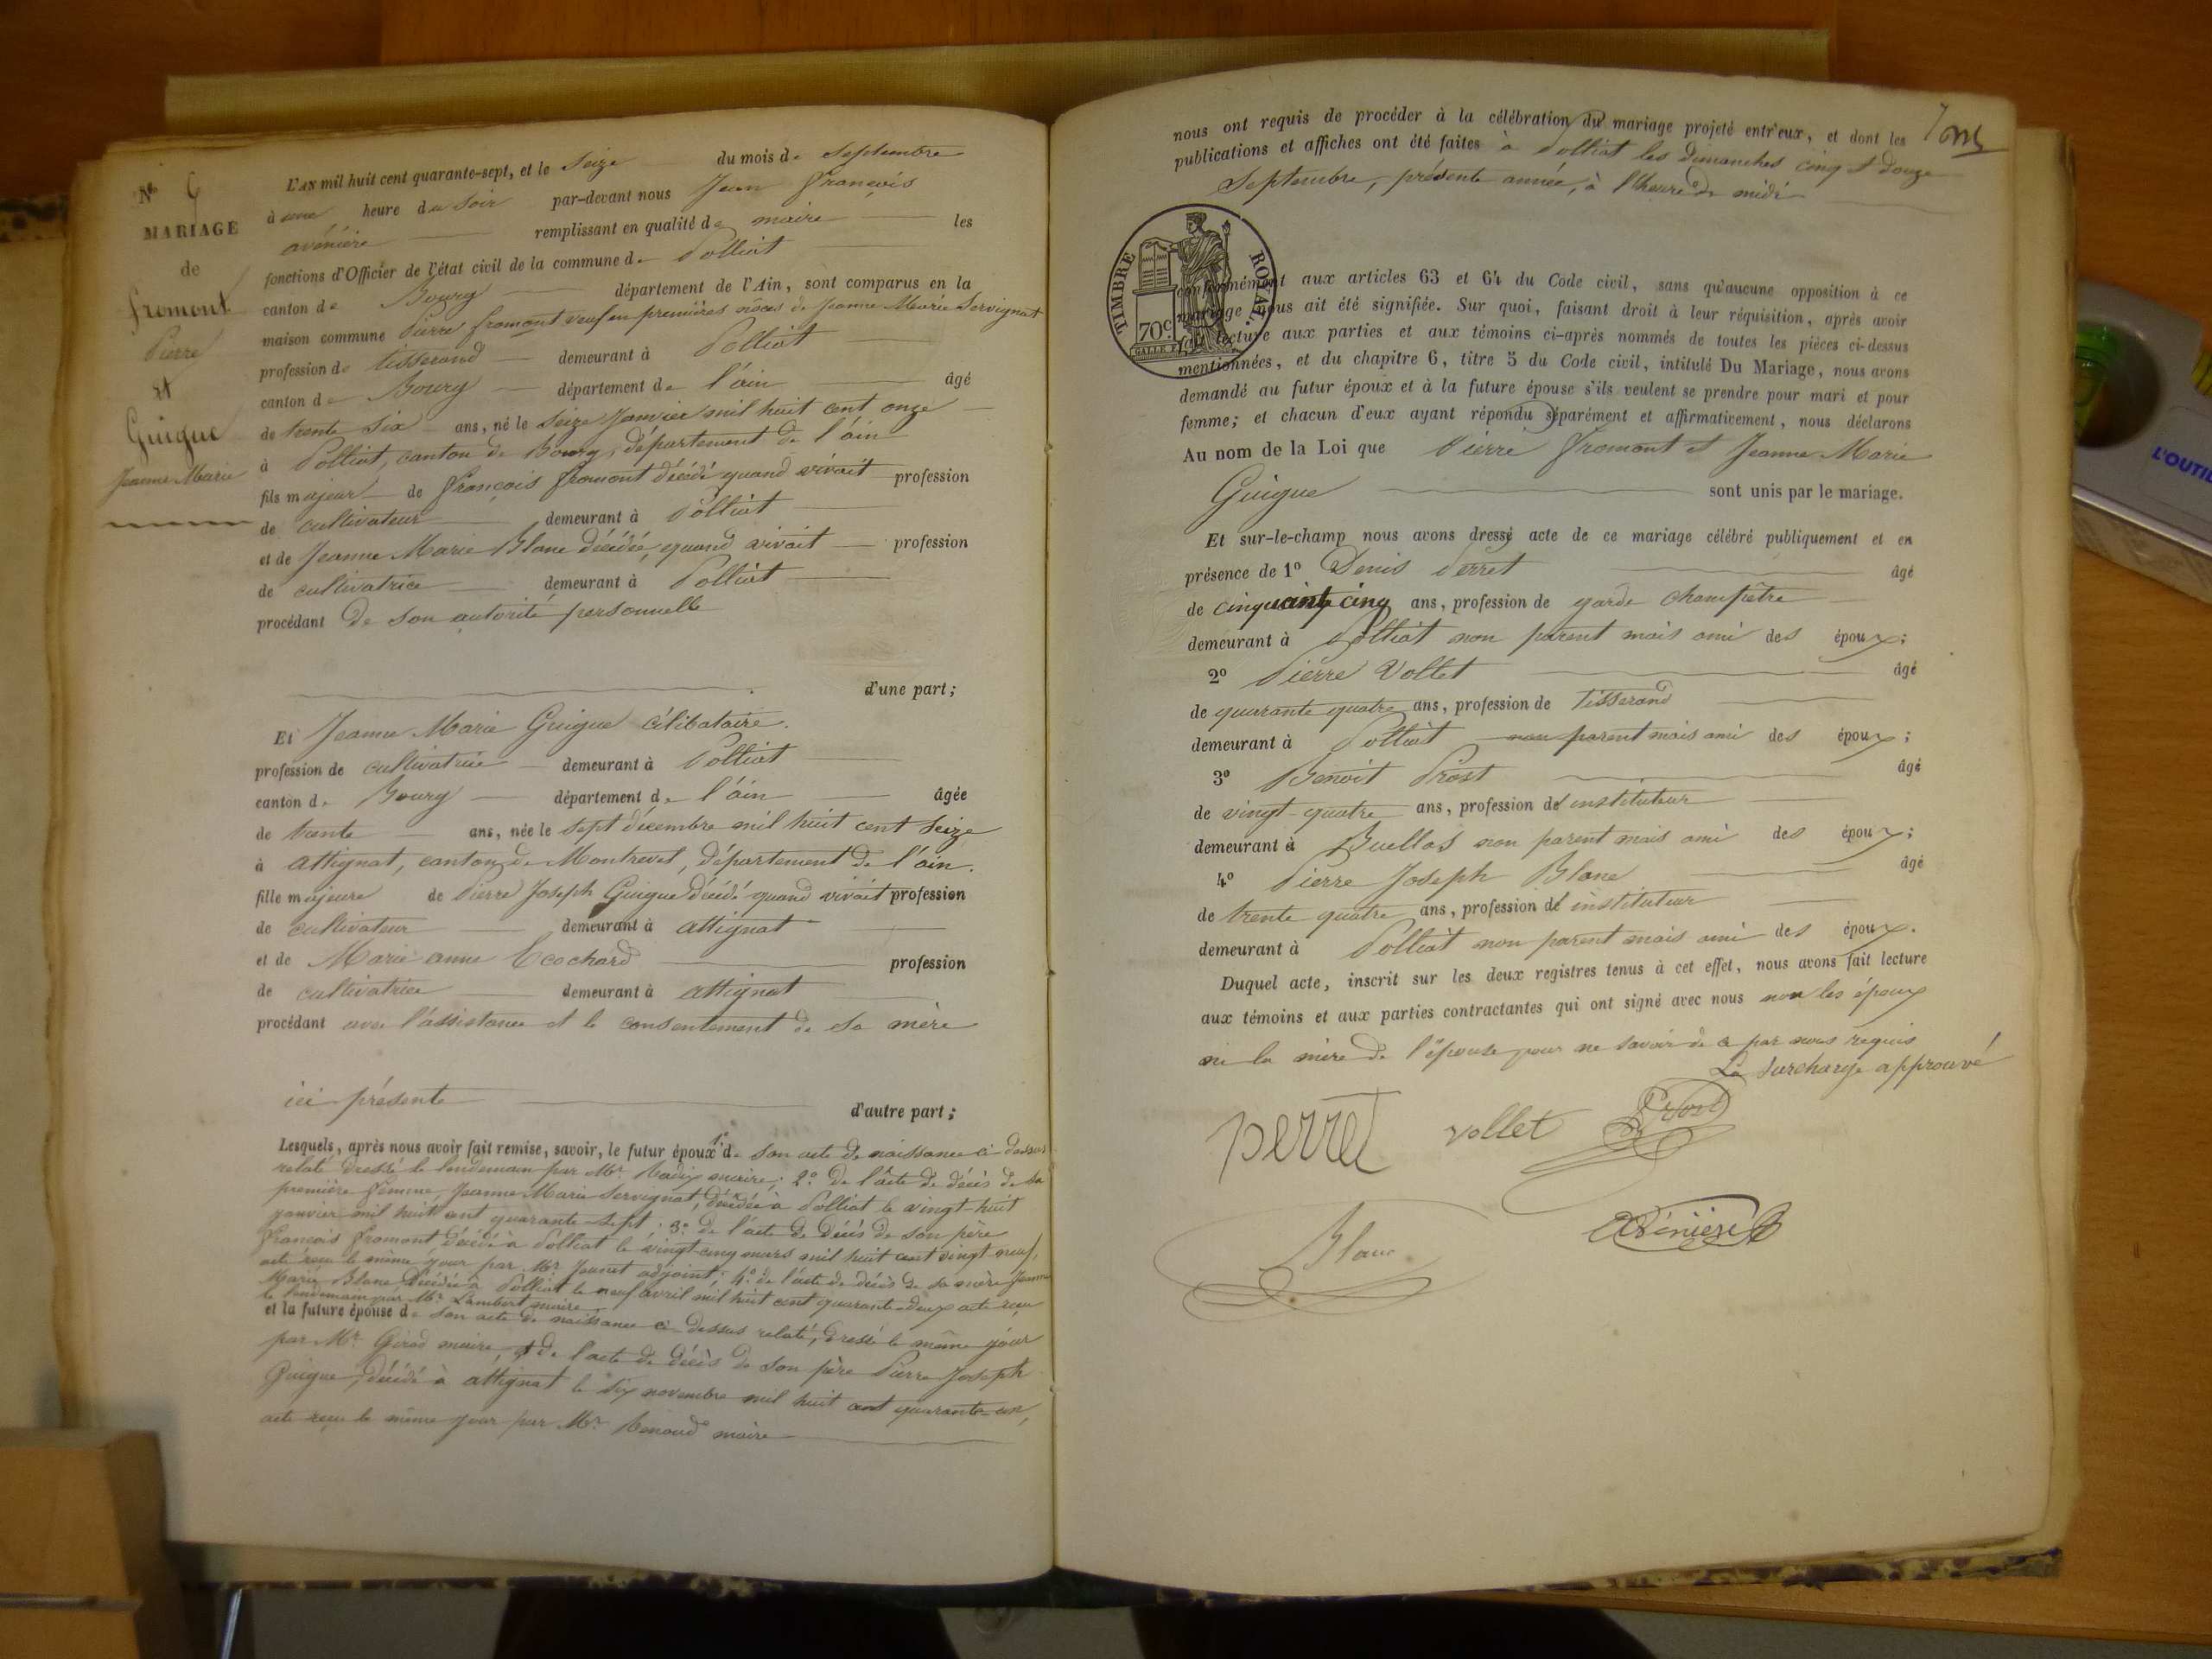 N° 6
MARIAGE
de
fromont
Pierre
et
Guigue
Jeanne Marie
L'AN mil huit cent quarante-sept, et le Seize du mois de Septembre
à une heure du Soir par-devant nous Jean François
avénière remplissant en qualité de maire les
fonctions d'Officier de l'état civil de la commune de Polliat
canton de Bourg département de l'Ain, sont comparus en la
maison commune Pierre fromont veuf en premières nôces de Jeanne Marie Servignat
profession de tisserand demeurant à Polliat
canton de Bourg département de l'ain âgé
de trente Six ans, né le Seize Janvier mil huit cent onze
à Polliat, canton de Bourg, département de l'ain
fils majeur de françois fromont décédé quand vivait profession
de cultivateur demeurant à Polliat
et de Jeanne Marie Blanc décédée, quand vivait profession
de cultivatrice demeurant à Polliat
procédant de son autorité personnelle
d'une part;
Et Jeanne Marie Guigue célibataire.
profession de cultivatrice demeurant à Polliat
canton de Bourg département de l'ain âgée
de trente ans, née le sept décembre mil huit cent Seize
à attignat, canton de Montrevel, département de l'ain.
fille majeure de Pierre Joseph Guigue décédé quand vivait profession
de cultivateur demeurant à attignat
et de Marie anne Ecochard profession
de cultivatrice demeurant à attignat
procédant avec l'assistance et le consentement de sa mère
ici présente
d'autre part;
Lesquels, après nous avoir fait remise, savoir, le futur époux 1° de son acte de naissance ci dessus
relaté dressé le lendemain par Mr. maire; 2° de l'acte de décès de sa
première femme, Jeanne Marie Servignat, décédée à Polliat le vingt-huit
janvier mil huit cent quarante-sept; 3° de l'acte de décès de son père
françois fromont décédé à Polliat le vingt-cinq mars mil huit cent vingt neuf,
acte reçu le même jour par Mr adjoint; 4° de l'acte de décès de sa mère Jeanne
Marie Blanc, décédée à Polliat le neuf avril mil huit cent quarante-deux acte reçu
le lendemain par Mr Lambert maire
et la future épouse de son acte de naissance ci-dessus relaté, dressé le même jour
par Mr Girod maire, et de l'acte de décès de son père Pierre Joseph
Guigue, décédé à attignat le six novembre mil huit cent quarante-un,
acte reçu le même jour par Mr. Renaud maire
nous ont requis de procéder à la célébration du mariage projeté entr'eux, et dont les
publications et affiches ont été faites à Polliat les dimanches cinq et douze
Septembre, présente année, à l'heure de midi
TIMBRE ROYAL.
70c
conformément aux articles 63 et 64 du Code civil, sans qu'aucune opposition à ce
mariage nous ait été signifiée. Sur quoi, faisant droit à leur réquisition, après avoir
fait lecture aux parties et aux témoins ci-après nommés de toutes les pièces ci-dessus
mentionnées, et du chapitre 6, titre 5 du Code civil, intitulé Du Mariage, nous avons
demandé au futur époux et à la future épouse s'ils veulent se prendre pour mari et pour
femme; et chacun d'eux ayant répondu séparément et affirmativement, nous déclarons
Au nom de la Loi que Pierre fromont et Jeanne Marie
Guigue sont unis par le mariage.
Et sur-le-champ nous avons dressé acte de ce mariage célébré publiquement et en
présence de 1° Denis Perret âgé
de cinquante cinq ans, profession de garde champêtre
demeurant à Polliat non parent mais ami des époux;
2° Pierre Vollet âgé
de quarante quatre ans, profession de Tisserand
demeurant à Polliat non parent mais ami des époux;
3° Benoit Prost âgé
de vingt-quatre ans, profession d'instituteur
demeurant à Buellas non parent mais ami des époux;
4° Pierre Joseph Blanc âgé
de trente quatre ans, profession d'instituteur
demeurant à Polliat non parent mais ami des époux.
Duquel acte, inscrit sur les deux registres tenus à cet effet, nous avons fait lecture
aux témoins et aux parties contractantes qui ont signé avec nous non les époux
ni la mère de l'épouse pour ne savoir de ce par nous requis
La Surcharge approuvé
perret vollet Prost
Blanc avénière
L'OUTIL